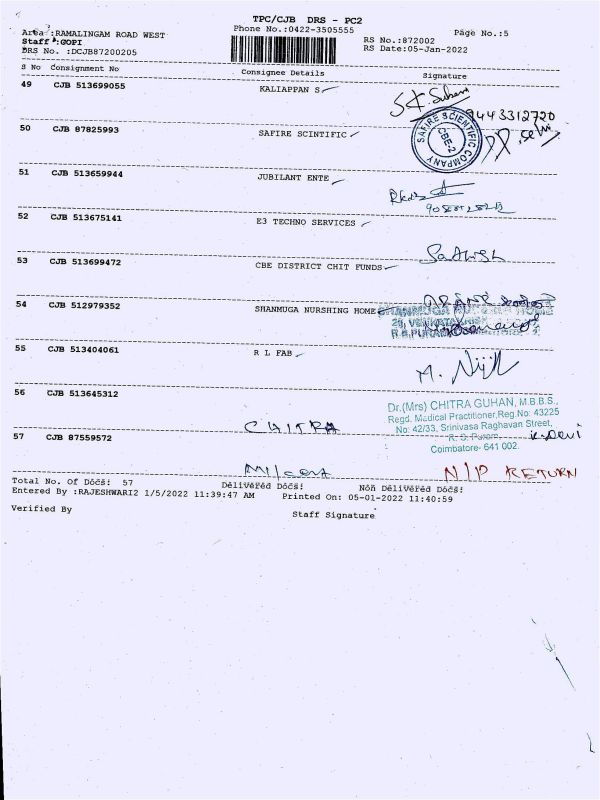 TPC/CJB DRS - PC2
Phone No.:0422-3505555
Area :RAMALINGAM ROAD WEST
Staff :GOPI
DRS No. :DCJB87200205
RS No.:872002
RS Date:05-Jan-2022
Page No.:5
S No Consignment No Consignee Details Signature
49 CJB 513699055 KALIAPPAN S
9443312720
50 CJB 87825993 SAFIRE SCINTIFIC
SAFIRE SCIENTIFIC COMPANY
CBE-2
51 CJB 513659944 JUBILANT ENTE
52 CJB 513675141 E3 TECHNO SERVICES
53 CJB 513699472 CBE DISTRICT CHIT FUNDS
54 CJB 512979352 SHANMUGA NURSHING HOME
SHANMUGA
55 CJB 513404061 R L FAB
56 CJB 513645312 CHITRA
Dr.(Mrs) CHITRA GUHAN, M.B.B.S.,
Regd. Medical Practitioner,Reg.No: 43225
No: 42/33, Srinivasa Raghavan Street,
R. S. Puram,
Coimbatore- 641 002.
K. Devi
57 CJB 87559572 N/P RETURN
Total No. Of Docs: 57 Delivered Docs: Non Delivered Docs:
Entered By :RAJESHWARI2 1/5/2022 11:39:47 AM Printed On: 05-01-2022 11:40:59
Verified By Staff Signature